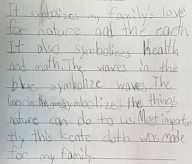 It symbolizes my family's love
for nature and the earth
It also symbolises health
and math. The waves in the
blue symbolize waves. The
lines in the symbolize the things
nature can do to us. Most important
tly this kente cloth was made
for my family.